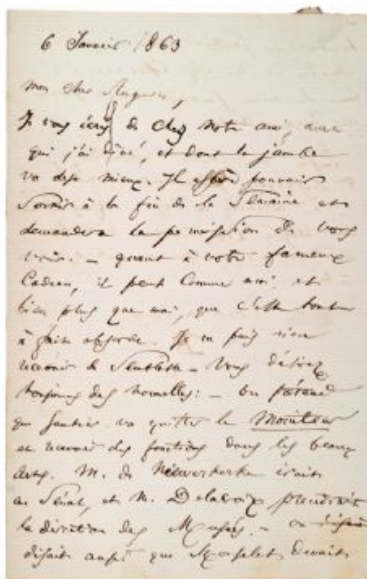 6 Janvier 1863
mon cher
Je vous écris de chez notre ami, avec
qui j'ai dîné, et dont la jambe
va déjà mieux. Il espère pouvoir
sortir à la fin de la Semaine et
demandera la permission de vous
voir. – quant à votre fameux
Cadeau, il pense comme moi et
bien plus que moi, que c'est tout
à fait absurde. Je ne puis rien
recevoir de – Vous désirez
toujours des nouvelles: – On prétend
que Gautier va quitter le Moniteur
et recevoir des fonctions dans les beaux
Arts. M. de Nieuwerkerke irait
au Sénat, et M. Delacroix prendrait
la direction des Musées. – on
disait aussi que Monselet devait